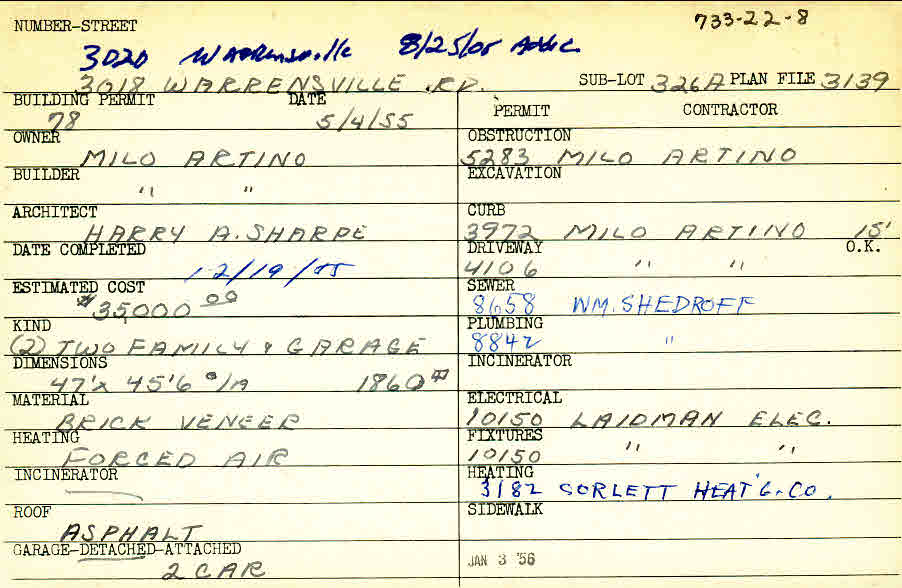 NUMBER-STREET
733-22-8
3020 Warrensville 8/25/05
3018 WARRENSVILLE RD. SUB-LOT 326A PLAN FILE 3139
BUILDING PERMIT DATE
78 5/4/55
PERMIT CONTRACTOR
OWNER
MILO ARTINO
OBSTRUCTION
5283 MILO ARTINO
BUILDER
" "
EXCAVATION
ARCHITECT
HARRY A. SHARPE
CURB
3972 MILO ARTINO 15'
DATE COMPLETED
12/19/55
DRIVEWAY O.K.
4106 " "
ESTIMATED COST
$35,000 00
SEWER
8658 WM. SHEDROFF
KIND
(2) TWO FAMILY & GARAGE
PLUMBING
8842 "
DIMENSIONS
47'x 45'6 1860
INCINERATOR
MATERIAL
BRICK VENEER
ELECTRICAL
10150 LAIDMAN ELEC.
HEATING
FORCED AIR
FIXTURES
10150 " "
INCINERATOR
HEATING
3182 SORLETT HEAT'G. CO.
ROOF
ASPHALT
SIDEWALK
GARAGE-DETACHED-ATTACHED
2 CAR
JAN 3 '56